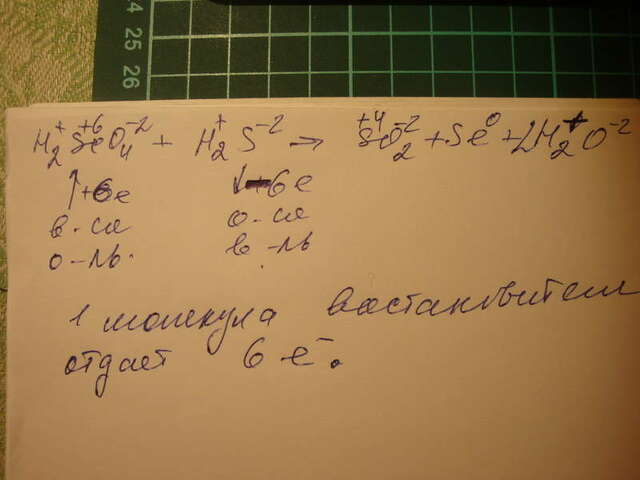 24
25
26
H₂⁺Se⁺⁶O₄⁻² + H₂⁺S⁻² → S⁺⁴O₂⁻² + Se⁰ + 2H₂⁺O⁻²
↑+6e ↓-6e
в-ся о-ся
о-ль. в-ль
1 молекула востановителя
отдает 6 e⁻.